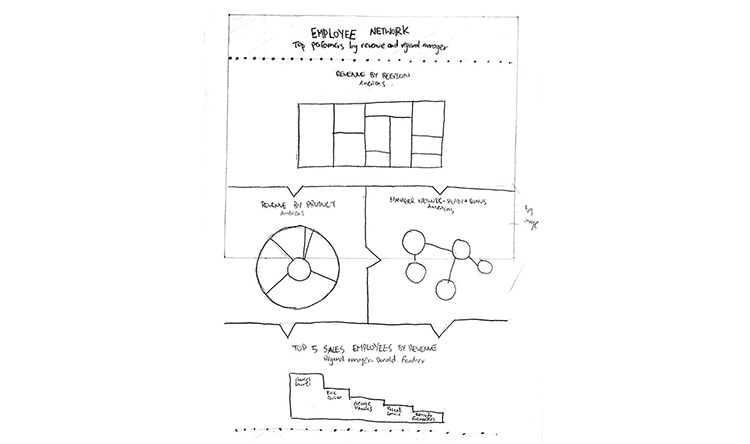 EMPLOYEE NETWORK
Top performers by revenue and regional manager
REVENUE BY REGION
Americas
REVENUE BY PRODUCT
Americas
MANAGER NETWORK - SALARY + BONUS
Americas
Big
image
TOP 5 SALES EMPLOYEES BY REVENUE
Regional manager - Donald
George
Pascal